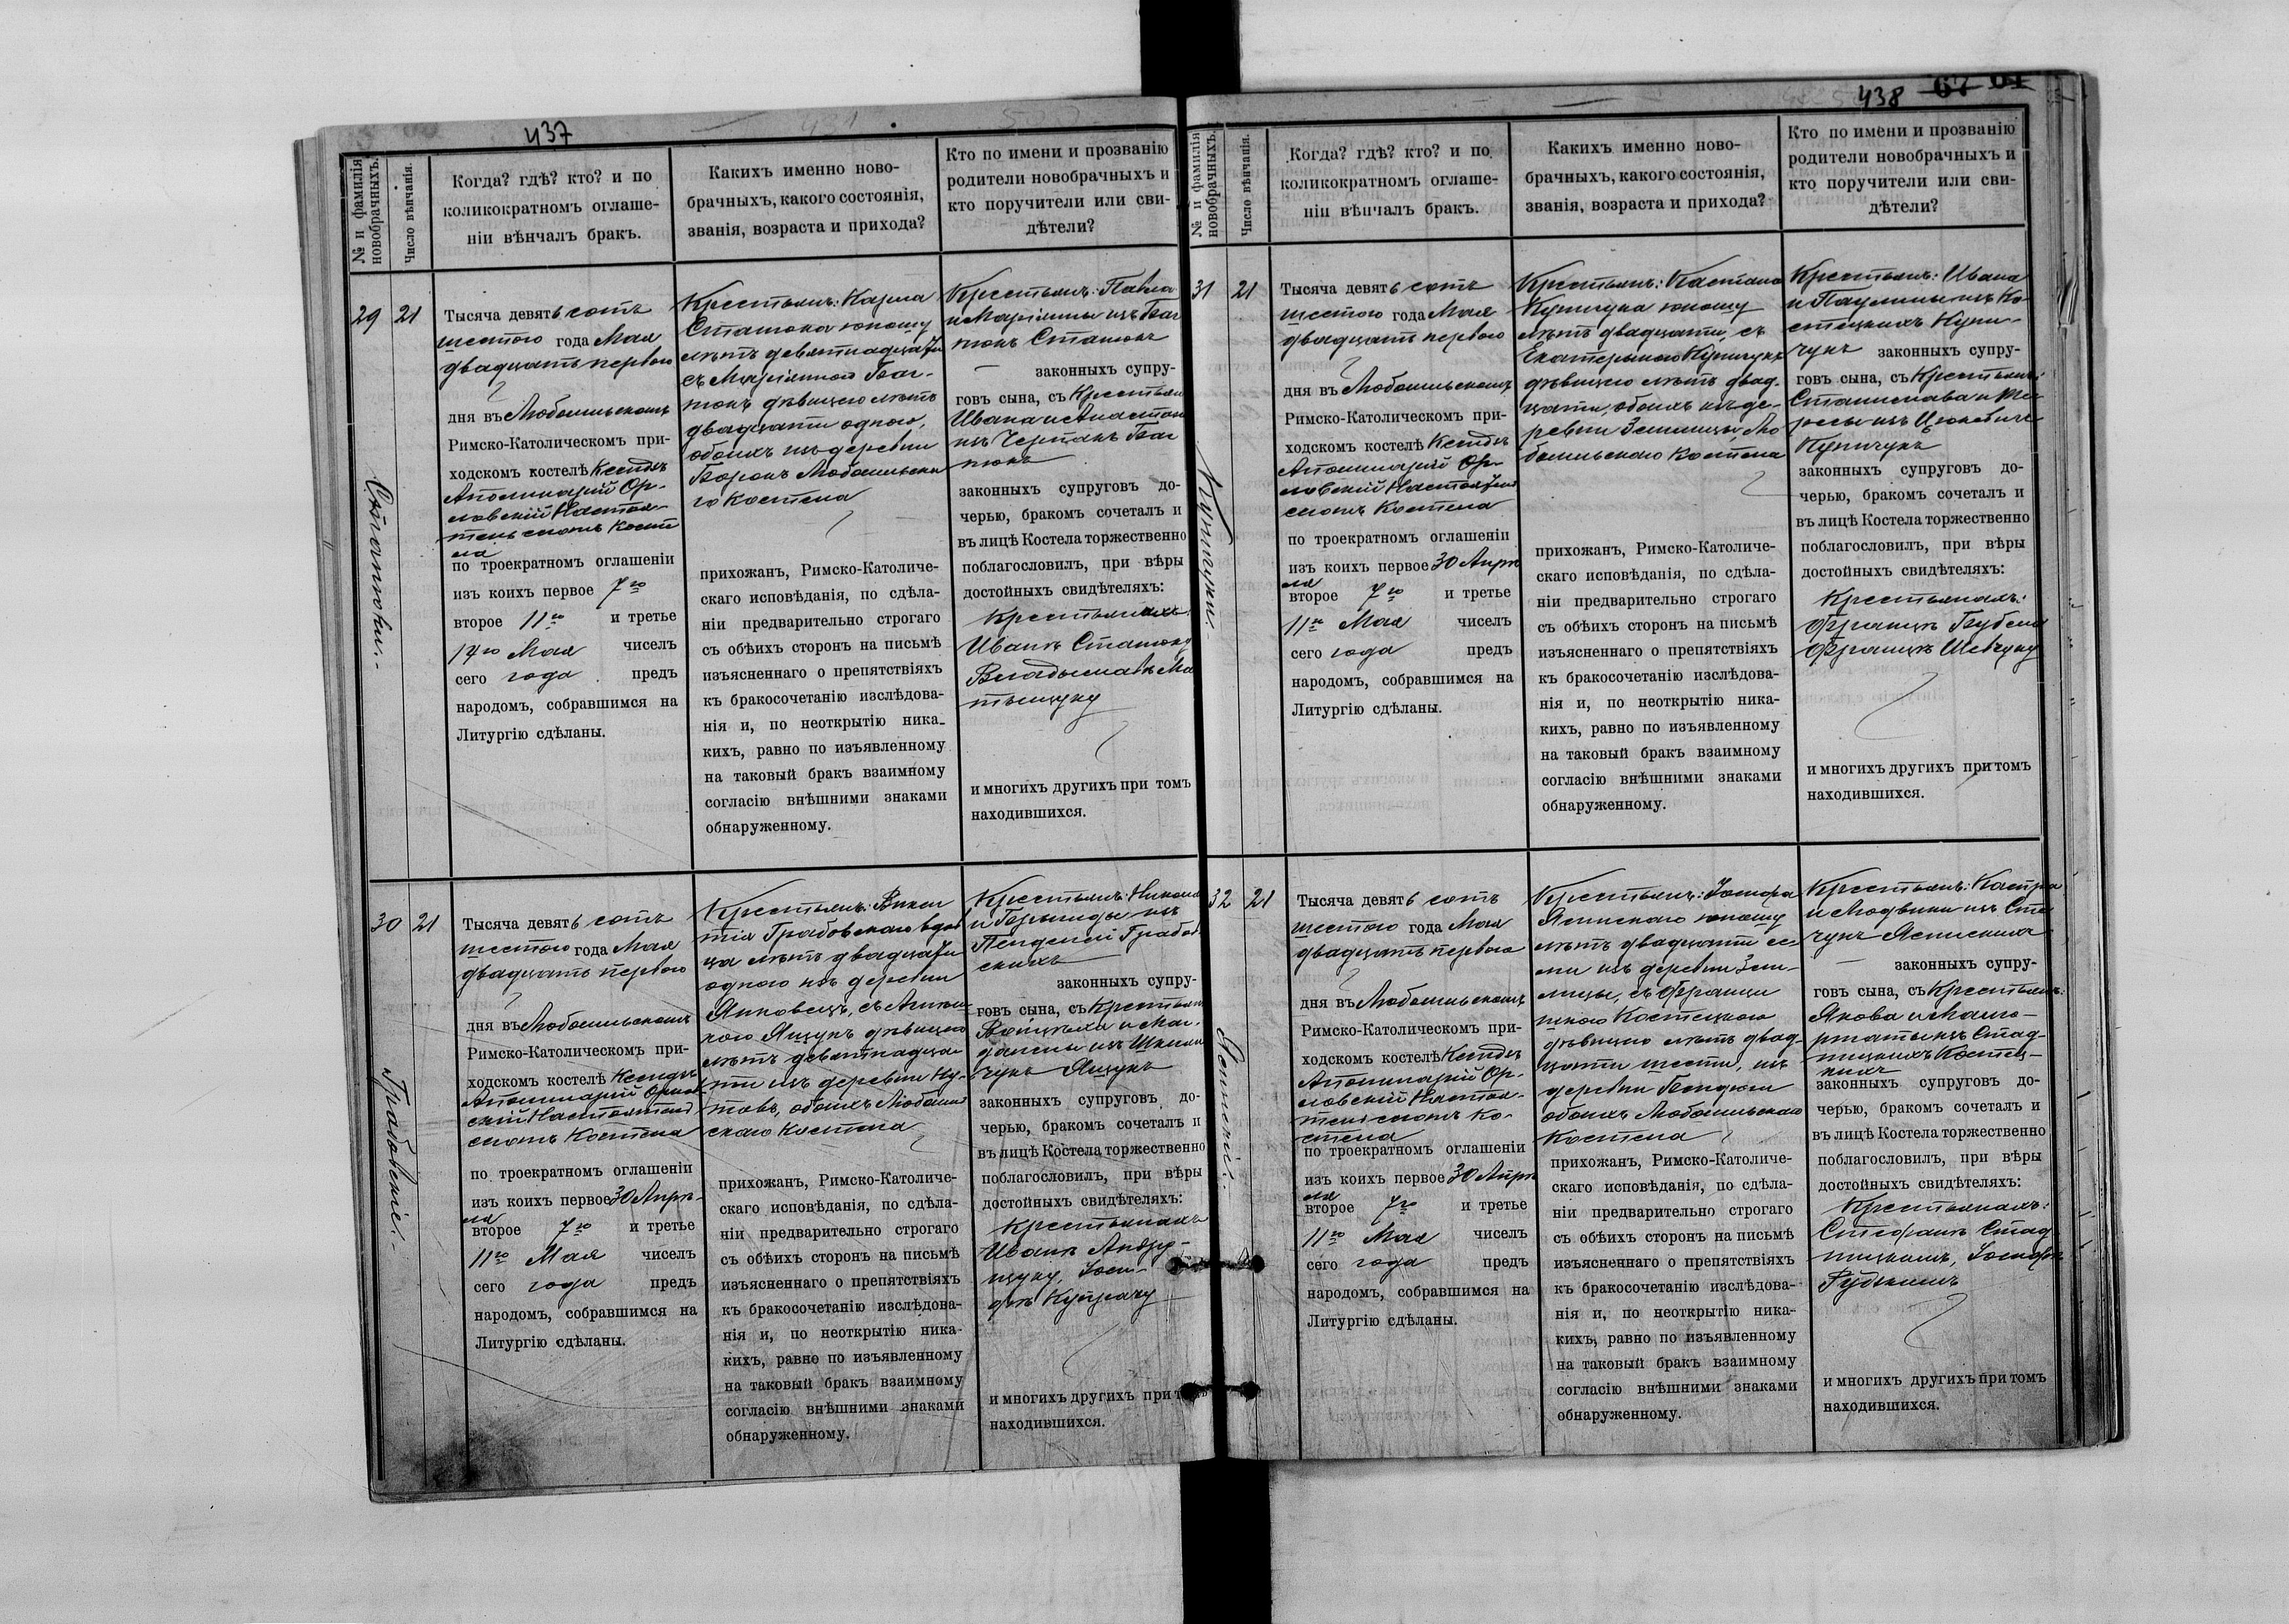 437
№ и фамилія новобрачныхъ.
Число вѣнчанія.
Когда? гдѣ? кто? и по
коликократномъ оглаше-
ніи вѣнчалъ бракъ.
Какихъ именно ново-
брачныхъ, какого состоянія,
званія, возраста и прихода?
Кто по имени и прозванію
родители новобрачныхъ и
кто поручители или сви-
дѣтели?
29
21
Станюки.-
Тысяча девять сотъ
шестого года Мая
двадцать перваго
дня въ Любомльскомъ
Римско-Католическомъ при-
ходскомъ костелѣ Ксендзъ
Аполинарій Ор-
ловскій Настоя-
тель сногъ Косте
ла
по троекратномъ оглашеніи
изъ коихъ первое 7го
второе 11го и третье
14го Мая чиселъ
сего года предъ
народомъ, собравшимся на
Литургію сдѣланы.
Крестьянъ: Карла
Станюка юношу
лѣтъ девятнадцати
съ Маріянною Баг-
нюкъ дѣвицею лѣтъ
двадцати одного,
обоихъ изъ деревни
Борокъ Любомльска
го Костела
прихожанъ, Римско-Католиче-
скаго исповѣданія, по сдѣла-
ніи предварительно строгаго
съ обѣихъ сторонъ на письмѣ
изъясненнаго о препятствіяхъ
къ бракосочетанію изслѣдова-
нія и, по неоткрытію ника-
кихъ, равно по изъявленному
на таковый бракъ взаимному
согласію внѣшними знаками
обнаруженному.
Крестьянъ: Павла
и Маріянны изъ Баг
нюкъ Станюкъ
законныхъ супру-
говъ сына, съ Крестьян
Ивана и Анастаз
изъ Баг
нюкъ
законныхъ супруговъ до-
черью, бракомъ сочеталъ и
въ лицѣ Костела торжественно
поблагословилъ, при вѣры
достойныхъ свидѣтеляхъ:
Крестьянахъ:
Иванѣ Станюку
Владыславѣ Ма
тыщуку
и многихъ другихъ при томъ
находившихся.
30
21
Грабовскіе.-
Тысяча девять сотъ
шестого года Мая
двадцать перваго
дня въ Любомльскомъ
Римско-Католическомъ при-
ходскомъ костелѣ Ксендзъ
Аполинарій Орлов
скій Настоятель
сногъ Костела
по троекратномъ оглашеніи
изъ коихъ первое 30 Апрѣ-
ля
второе 7го и третье
11го Мая чиселъ
сего года предъ
народомъ, собравшимся на
Литургію сдѣланы.
Крестьянъ: Викен
тія Грабовскаго вдов
ца лѣтъ двадцати
одного изъ деревни
Янковецъ, съ
Ящукъ дѣвицею
лѣтъ девятнадца
ти изъ деревни Ку-
товъ, обоихъ Любомль
скаго Костела
прихожанъ, Римско-Католиче-
скаго исповѣданія, по сдѣла-
ніи предварительно строгаго
съ обѣихъ сторонъ на письмѣ
изъясненнаго о препятствіяхъ
къ бракосочетанію изслѣдова-
нія и, по неоткрытію ника-
кихъ, равно по изъявленному
на таковый бракъ взаимному
согласію внѣшними знаками
обнаруженному.
Крестьянъ: Никола
и изъ
Грабов
скихъ
законныхъ супру-
говъ сына, съ Крестьян
Войцѣха и Маг-
далены изъ
чукъ Ящукъ
законныхъ супруговъ до-
черью, бракомъ сочеталъ и
въ лицѣ Костела торжественно
поблагословилъ, при вѣры
достойныхъ свидѣтеляхъ:
Крестьянахъ
Иванѣ Андру-
щуку, Іоси-
фѣ Купрачу
и многихъ другихъ при томъ
находившихся.
438 67 61
№ и фамилія новобрачныхъ.
Число вѣнчанія.
Когда? гдѣ? кто? и по
коликократномъ оглаше-
ніи вѣнчалъ бракъ.
Какихъ именно ново-
брачныхъ, какого состоянія,
званія, возраста и прихода?
Кто по имени и прозванію
родители новобрачныхъ и
кто поручители или сви-
дѣтели?
31
21
Купичуки.
Тысяча девять сотъ
шестого года Мая
двадцать перваго
дня въ Любомльскомъ
Римско-Католическомъ при-
ходскомъ костелѣ Ксендзъ
Аполинарій Ор-
ловскій Настоятель
сногъ Костела
по троекратномъ оглашеніи
изъ коихъ первое 30 Апрѣ
ля
второе 7го и третье
11го Мая чиселъ
сего года предъ
народомъ, собравшимся на
Литургію сдѣланы.
Крестьянъ: Каетана
Купичука юношу
лѣтъ двадцати, съ
Екатериною Купичукъ
дѣвицею лѣтъ двад-
цати, обоихъ изъ де-
ревни Земницы, Лю
бомльскаго Костела
прихожанъ, Римско-Католиче-
скаго исповѣданія, по сдѣла-
ніи предварительно строгаго
съ обѣихъ сторонъ на письмѣ
изъясненнаго о препятствіяхъ
къ бракосочетанію изслѣдова-
нія и, по неоткрытію ника-
кихъ, равно по изъявленному
на таковый бракъ взаимному
согласію внѣшними знаками
обнаруженному.
Крестьянъ: Ивана
и Паулины изъ Ко-
стецкихъ Купи-
чукъ законныхъ супру-
говъ сына, съ Крестьянъ:
Станислава и Те-
ресы изъ
Купичукъ
законныхъ супруговъ до-
черью, бракомъ сочеталъ и
въ лицѣ Костела торжественно
поблагословилъ, при вѣры
достойныхъ свидѣтеляхъ:
Крестьянахъ:
Францѣ
Францѣ Шевчуку
и многихъ другихъ при томъ
находившихся.
32
21
Тысяча девять сотъ
шестого года Мая
двадцать перваго
дня въ Любомльскомъ
Римско-Католическомъ при-
ходскомъ костелѣ Ксендзъ
Аполинарій Ор-
ловскій Настоя-
тель сногъ Ко-
стела
по троекратномъ оглашеніи
изъ коихъ первое 30 Апрѣ
ля
второе 7го и третье
11го Мая чиселъ
сего года предъ
народомъ, собравшимся на
Литургію сдѣланы.
Крестьянъ: Іосифа
Яспискаго юношу
лѣтъ двадцати се
ми изъ деревни Зем-
лицы, съ Франци
шкою Костецкою
дѣвицею лѣтъ двад-
цати шести, изъ
деревни Бендюги
обоихъ Любомльскаго
Костела
прихожанъ, Римско-Католиче-
скаго исповѣданія, по сдѣла-
ніи предварительно строгаго
съ обѣихъ сторонъ на письмѣ
изъясненнаго о препятствіяхъ
къ бракосочетанію изслѣдова-
нія и, по неоткрытію ника-
кихъ, равно по изъявленному
на таковый бракъ взаимному
согласію внѣшними знаками
обнаруженному.
Крестьянъ: Каспра
и Людвики изъ Сте
чукъ Яспискихъ
законныхъ супру-
говъ сына, съ Крестьянъ:
Якова и Малго-
ржаты изъ Стад-
ницкихъ Костец-
кихъ
законныхъ супруговъ до-
черью, бракомъ сочеталъ и
въ лицѣ Костела торжественно
поблагословилъ, при вѣры
достойныхъ свидѣтеляхъ:
Крестьянахъ:
Стефанѣ Стад
ницкимъ, Іосифѣ
Рудзкимъ
и многихъ другихъ при томъ
находившихся.